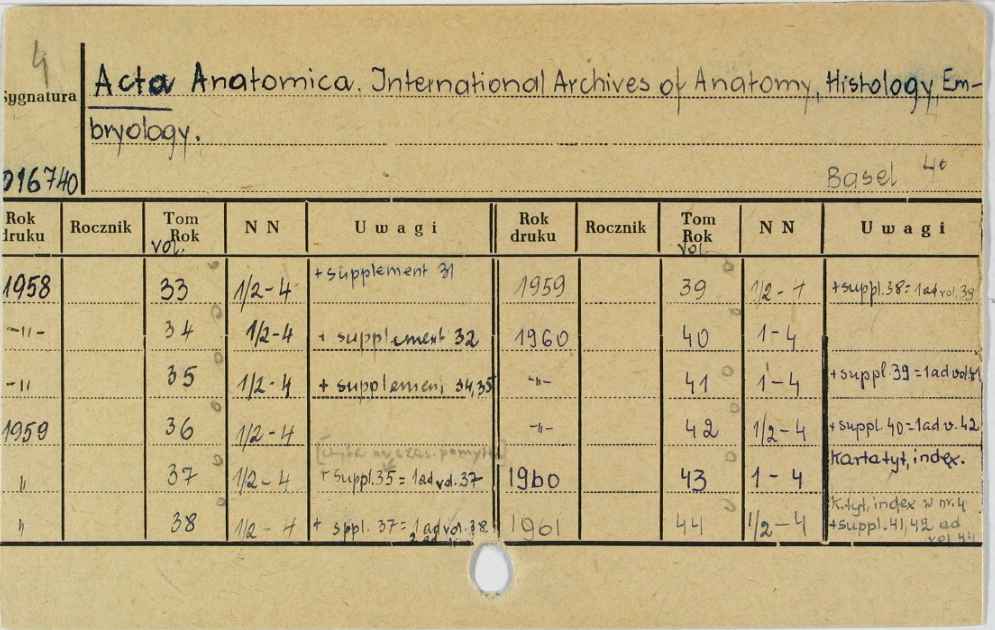 4
Sygnatura
Acta Anatomica. International Archives of Anatomy, Histology, Em-
bryology.
016740
Basel 4°
Rok druku Rocznik Tom Rok vol. NN Uwagi Rok druku Rocznik Tom Rok vol. NN Uwagi
1958 33 1/2-4 + supplement 31 1959 39 1/2-4 + suppl. 38=1 ad vol. 39
-"- 34 1/2-4 + supplement 32 1960 40 1-4
-" 35 1/2-4 + supplement 34,35 -"- 41 1-4 + suppl. 39=1 ad vol. 41
1959 36 1/2-4 -"- 42 1/2-4 + suppl. 40=1 ad v. 42
" 37 1/2-4 + Suppl. 35=1 ad vol. 37 1960 43 1-4 Karta tyt, index.
" 38 1/2-4 + sppl. 37=1 ad vol. 38 1961 44 1/2-4 K. tyt, index w nr. 4
+ suppl. 41,42 ad
vol 44